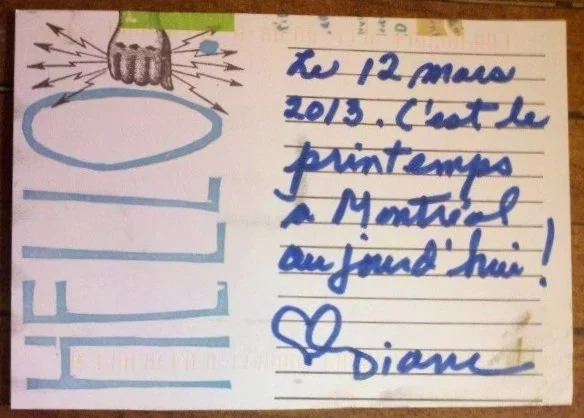 HELLO
Le 12 mars
2013. C'est le
printemps
à Montréal
aujourd'hui!
Diane